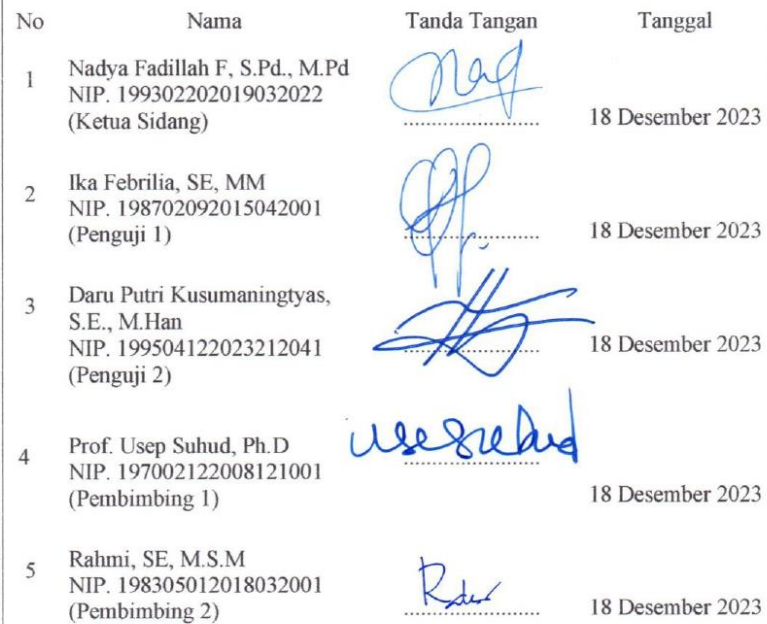 No Nama Tanda Tangan Tanggal
1 Nadya Fadillah F, S.Pd., M.Pd
NIP. 199302202019032022
(Ketua Sidang) .................... 18 Desember 2023
2 Ika Febrilia, SE, MM
NIP. 198702092015042001
(Penguji 1) .................... 18 Desember 2023
3 Daru Putri Kusumaningtyas,
S.E., M.Han
NIP. 199504122023212041 .................... 18 Desember 2023
(Penguji 2)
4 Prof. Usep Suhud, Ph.D
NIP. 197002122008121001
(Pembimbing 1) 18 Desember 2023
5 Rahmi, SE, M.S.M
NIP. 198305012018032001
(Pembimbing 2) .................... 18 Desember 2023